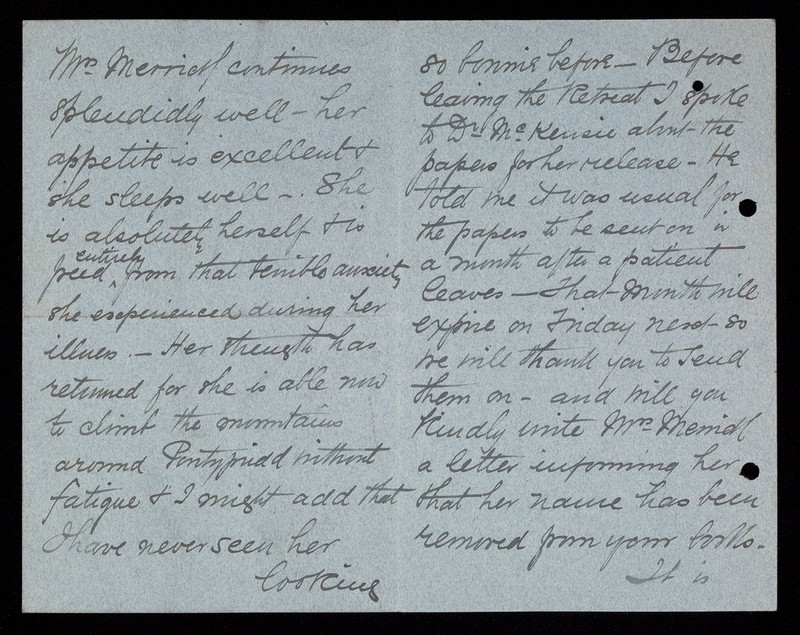 Mrs. Merrick continues
splendidly well - her
appetite is excellent &
she sleeps well -. She
is absolutely herself & is
freed entirely from that terrible anxiety
she experienced during her
illness. - Her strength has
returned for she is able now
to climb the mountains
around Pontypridd without
fatigue & I might add that
I have never seen her
looking
so bonnie before - Before
leaving the Retreat I spoke
to Dr. McKensie about the
papers for her release - He
told me it was usual for
the papers to be sent on in
a month after a patient
leaves - That Month will
expire on Friday next so
we will thank you to send
them on - and will you
Kindly write Mrs. Merrick
a letter informing her
that her name has been
removed from your books -
It is